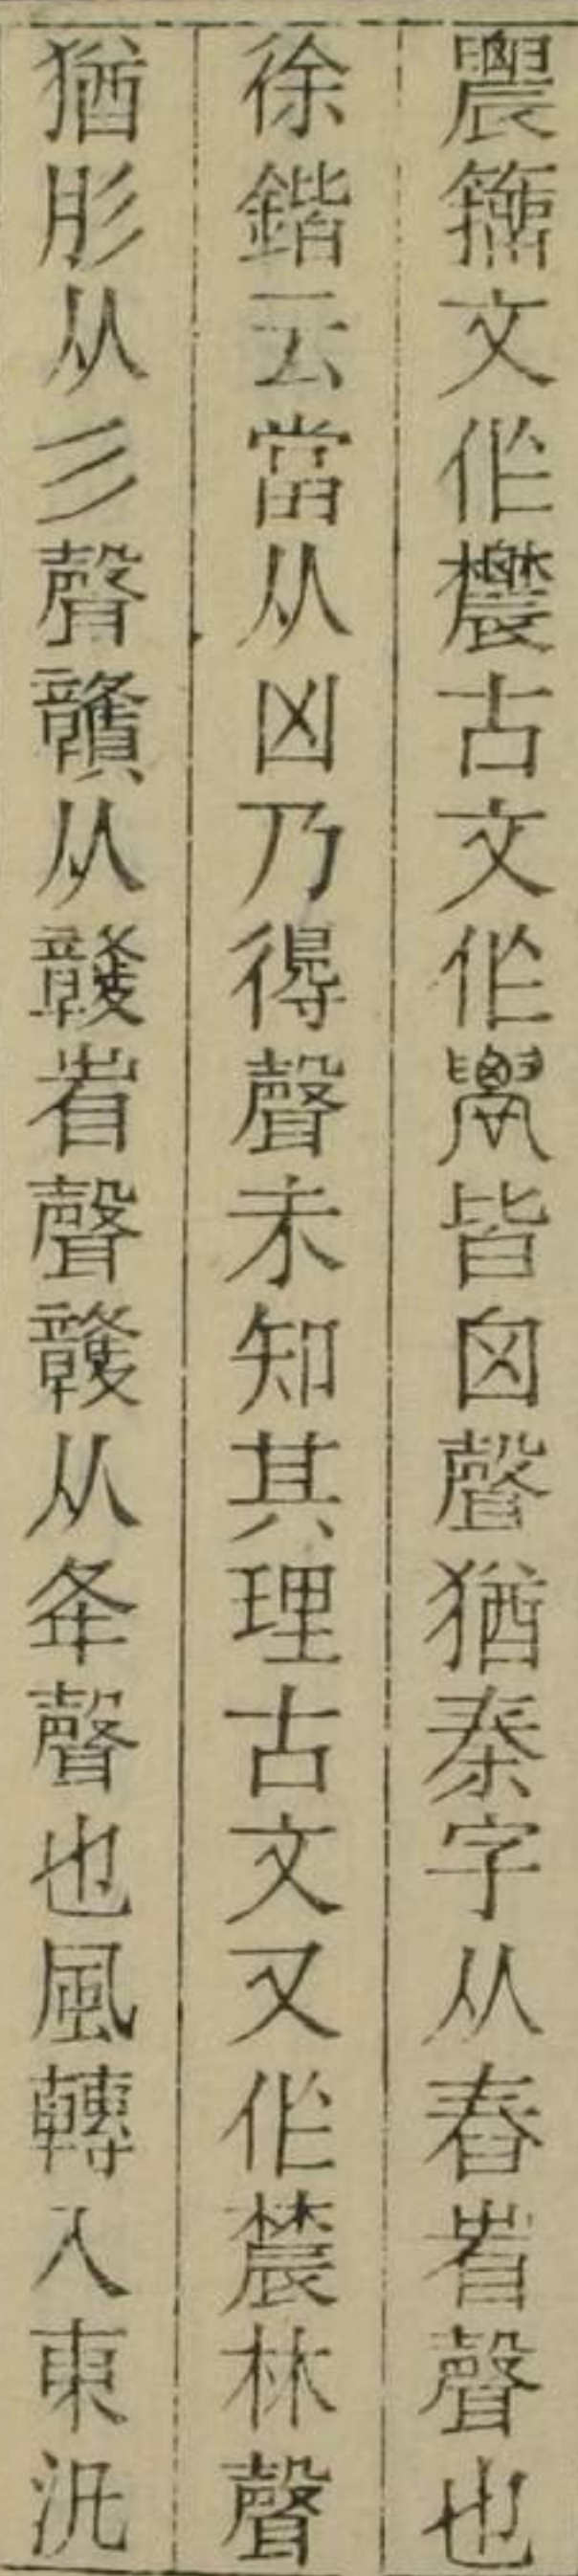 䢉籒文作欁古文作𦦥皆囟聲猶秦字从舂省聲也
徐鍇云當从凶乃得聲未知其理古文又作䢅林聲
猶肜从彡聲贛从竷省聲竷从夅聲也風轉入東汎